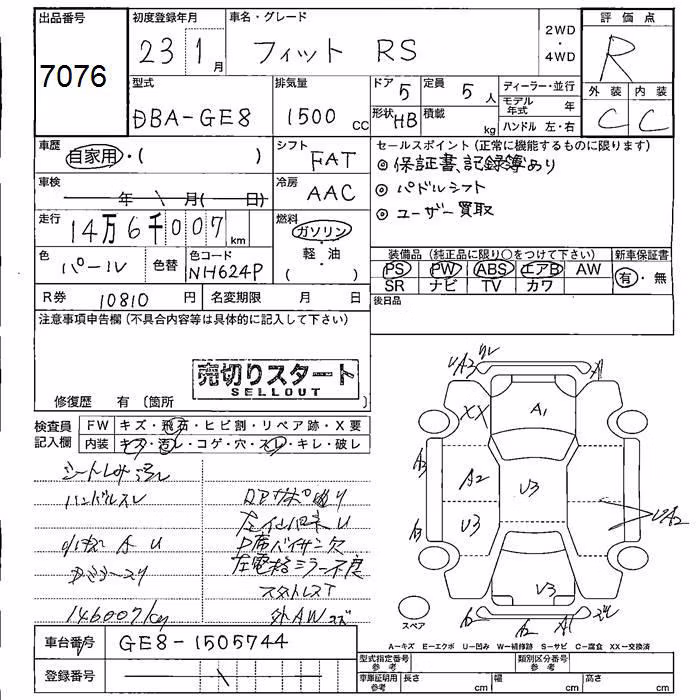 出品番号 初度登録年月 車名・グレード 評価点
7076 23 1月 フィット RS 2WD・4WD R
型式 排気量 ドア 5 定員 5人 ディーラー・並行 外装 内装
DBA-GE8 1500cc 形状 HB 積載 kg モデル年式 年 C C
ハンドル 左・右
車歴 自家用・( ) シフト FAT セールスポイント (正常に機能するものに限ります)
◎ 保証書、記録簿あり
車検 年 月( 日) 冷房 AAC ◎ パドルシフト
◎ ユーザー買取
走行 14万6千007km 燃料 ガソリン・軽・油( )
色 パール 色替 色コード NH624P
装備品 (純正品に限り○をつけて下さい) 新車保証書
PS PW ABS エアB AW 有・無
SR ナビ TV カワ
R券 10810円 名変期限 月 日 後日品
注意事項申告欄 (不具合内容等は具体的に記入して下さい)
売切りスタート
SELLOUT
修復歴 有 (箇所 )
検査員記入欄 FW キズ・飛石・ヒビ割・リペア跡・X要
内装 キズ・汚レ・コゲ・穴・スレ・キレ・破レ
ハンドルスレ
左電格ミラー不良
スタットレスT
146007kg 外AW
XX A1 A2 V3 V3 V3 A3 A1
スペア
A=キズ E=エクボ U=凹み W=補修跡 S=サビ C=腐食 XX=交換済
車台番号 GE8-1505744
登録番号
型式指定番号 参考 類別区分番号 参考
車庫証明用 参考 長さ cm 幅 cm 高さ cm